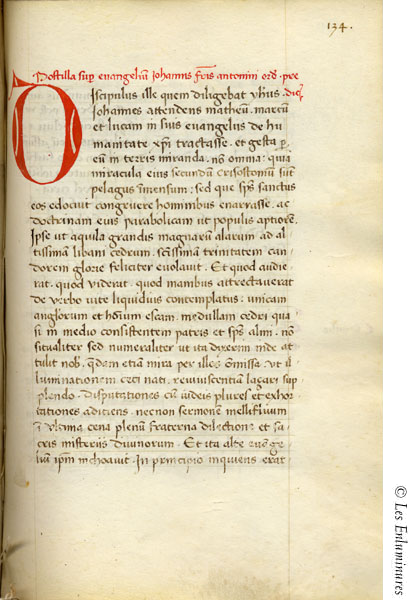 134.
Postilla sup evangeliū Johannis fr̄is antonini ord. pre
dic̄.
Discipulus ille quem diligebat yhus.
Johannes attendens matheū. marcū
et lucam in suis euangelijs de hu
manitate xp̄i tractasse. et gesta per
eū in terris miranda. nō omnia: quia
miracula eius secundū crisostomū sūt
pelagus īmensum: sed que sp̄s sanctus
eos edocuit congruere hominibus enarrasse. ac
doctrinam eius parabolicam ut populis aptiorē.
Ipse ut aquila grandis magnarū alarum ad al
tissimā libani cedrum. sctissimā trinitatem can
dorem glorie feliciter euolauit. Et quod audie
rat. quod viderat. quod manibus attrectauerat
de verbo uite liquidius contemplatus. unicam
anglorum et hoīum escam. medullam cedri qua
si in medio consistentem patris et sp̄s
situaliter sed numeraliter ut ita dixerim inde at
tulit nob. quedam etiā mira per illos omissa. ut il
luminationem ceci nati. reuiuiscentiā laçari sup
plendo. disputationes cū iudeis plures et exhor
tationes adiciens. necnon sermonē mellifluum
ī ultima cena plenū fraterna dilectione et sa
cris misterijs diuinorum. Et ita alte euāge
lium ip̄m inchoauit. In principio inquiens erat
© Les Enluminures